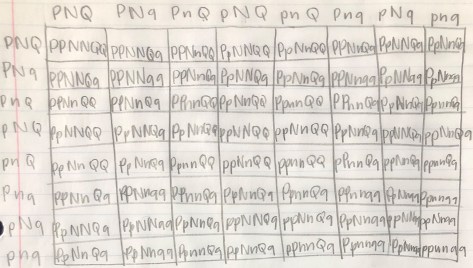 PNQ PNq PnQ pNQ pnQ Pnq pNq pnq
PNQ PPNNQQ PPNNQq PPNnQQ PpNNQQ PpNnQQ PPNnQq PpNNQq PpNnQq
PNq PPNNQq PPNNqq PPNnQq PpNNQq PpNnQq PPNnqq PpNNqq PpNnqq
PnQ PPNnQQ PPNnQq PPnnQQ PpNnQQ PpnnQQ PPnnQq PpNnQq PpnnQq
pNQ PpNNQQ PpNNQq PpNnQQ ppNNQQ ppNnQQ PpNnQq ppNNQq ppNnQq
pnQ PpNnQQ PpNnQq PpnnQQ ppNnQQ ppnnQQ PpnnQq ppNnQq ppnnQq
Pnq PPNnQq PPNnqq PPnnQq PpNnQq PpnnQq PPnnqq PpNnqq Ppnnqq
pNq PpNNQq PpNNqq PpNnQq ppNNQq ppNnQq PpNnqq ppNNqq ppNnqq
pnq PpNnQq PpNnqq PpnnQq ppNnQq ppnnQq Ppnnqq ppNnqq ppnnqq